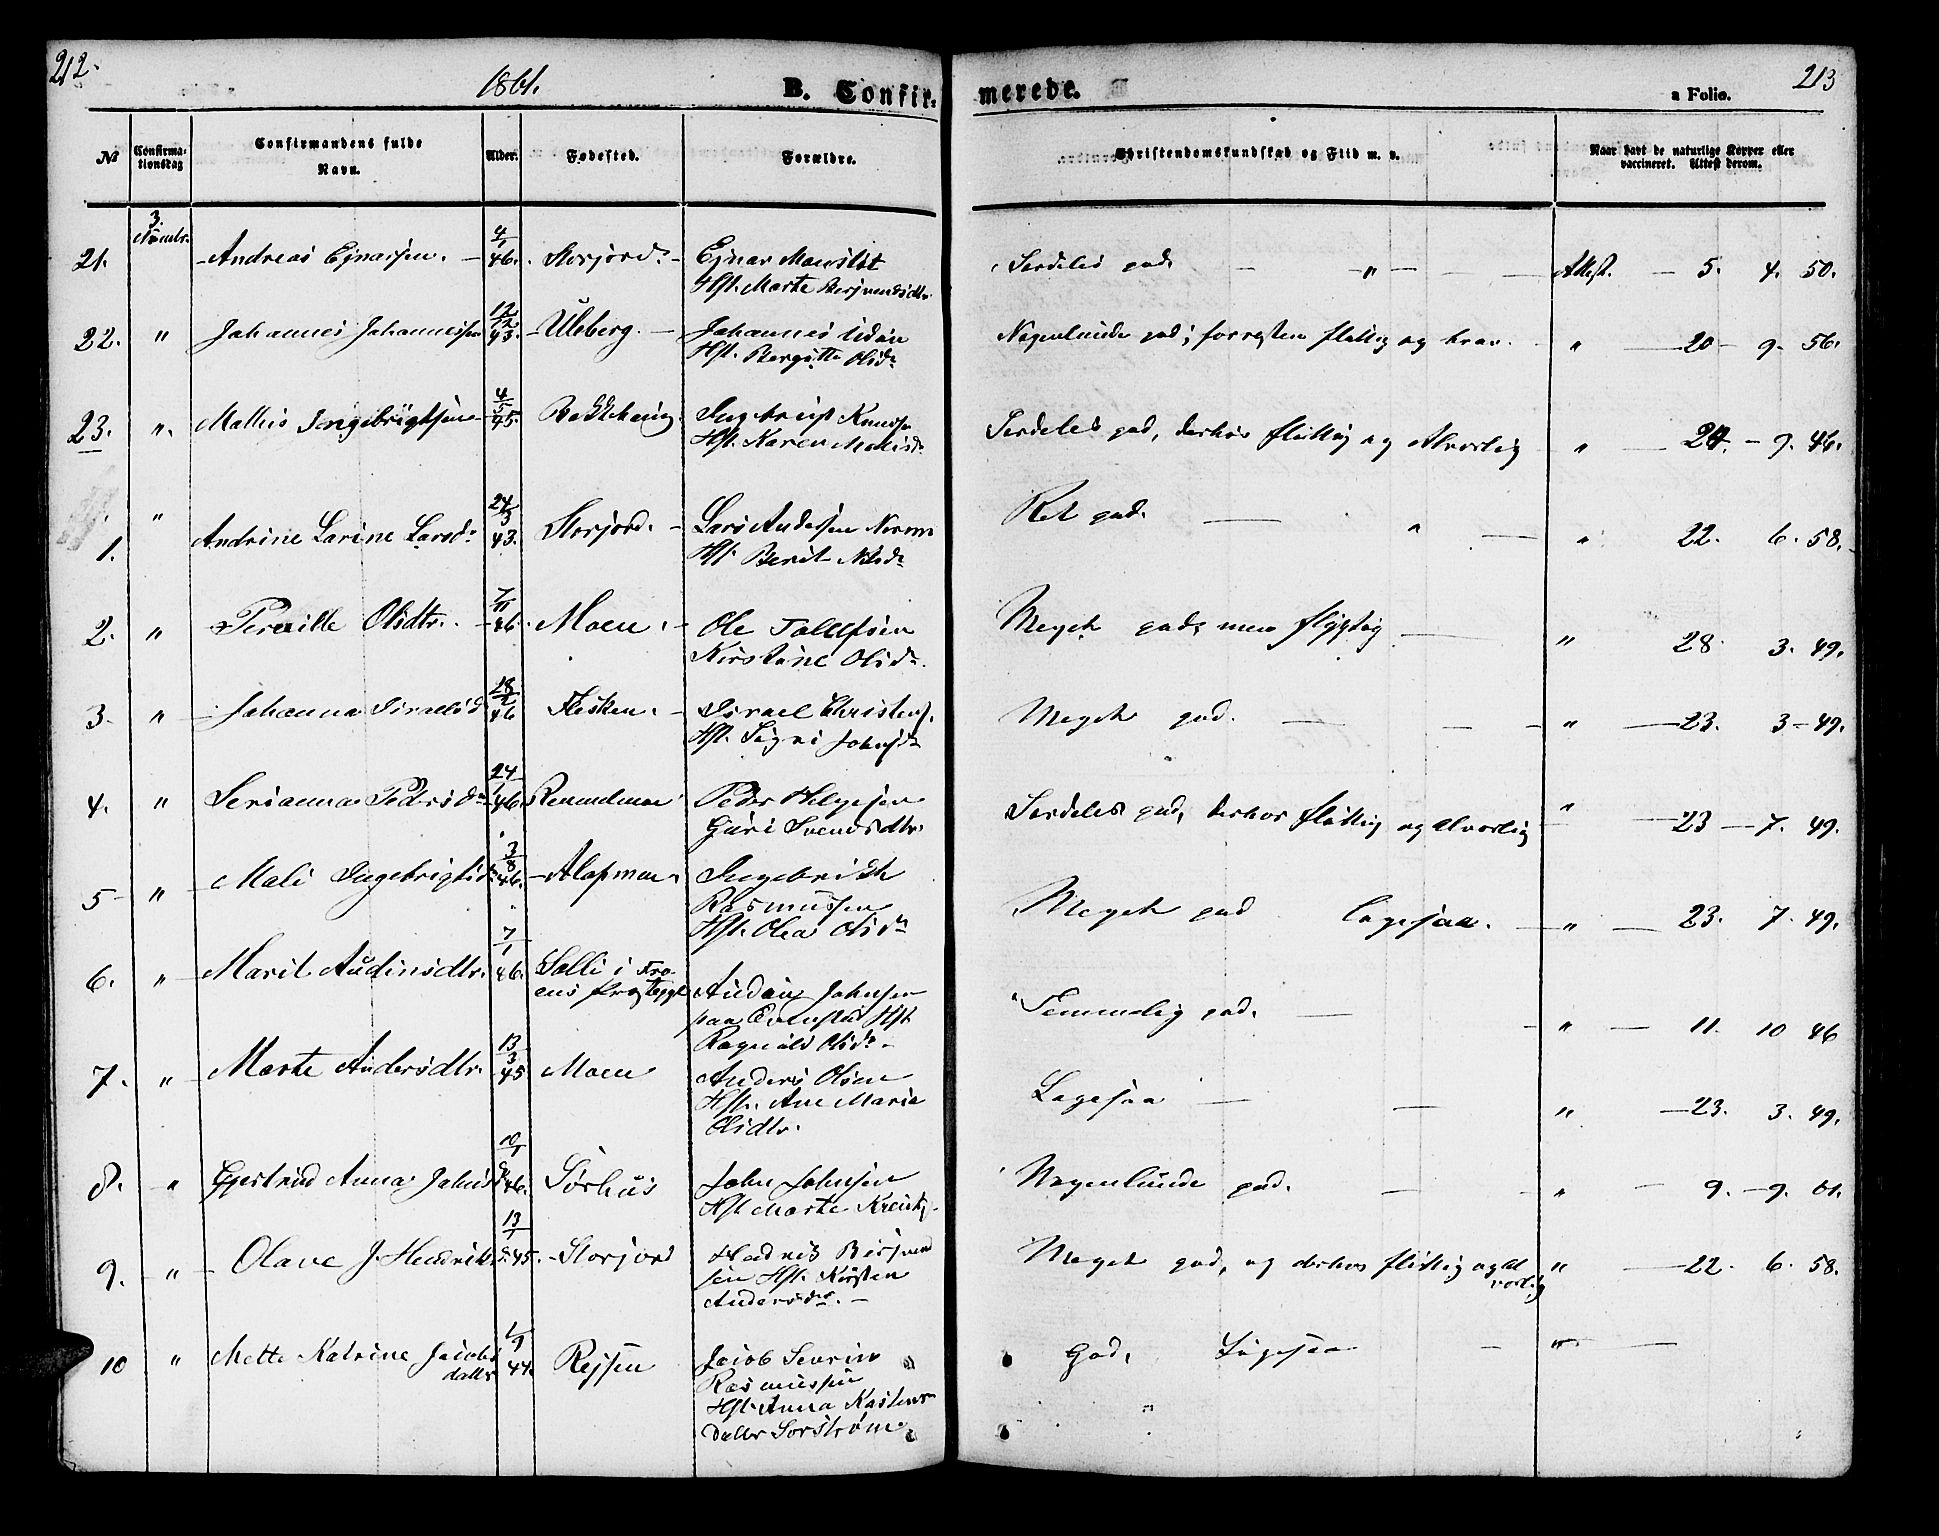 212.
1861.
B. Confir-
merede.
213
a Folio.
№
Confirma-
tionsdag
Confirmandens fulde
Navn.
Alder.
Fødested.
Forældre.
Christendomskundskab og Flid m. v.
Naar havt de naturlige Kopper eller
vaccineret. Attest derom.
21. 3. Novembr. Andreas Ejnarsen. 4/1 46. Storjord. Ejnar
Hst. Marte
Serdeles god. " Attest. 5. 4. 50.
22. " Johannes Johannessen 12/12 43. Uleberg. Johannes
Hst. Bergitte Olsdr
Nogenlunde god; forresten flittig og brav. " 20 - 9. 56.
23. " Mathis Ingebrigtsen 4/5 45. Ingebrigt Knutsen
Hst. Karen
Serdeles god, derhos flittig og Alvorlig " 24. - 9. 46.
1. " Andrine Larine Larsdr 24/3 43. Storjord. Lars Andersen
Hst. Berit Nilsdr
Ret god. " " 22. 6. 58.
2. " Pernille Olsdtr. 7/11 46. Moen. Ole Tollefsen
Kirstine Olsdr.
Meget god, men flygtig " 28. 3. 49.
3. " Johanna Israelsd 28/2 46 Flesken. Israel Christens.
Hst. Signi Johnsdr
Meget god. " 23. 3 - 49.
4. " Serianna Pedersdr 24/1 46. Peder Helgesen
Guri Svendsdtr.
Serdeles god, derhos flittig og Alvorlig " 23 - 7. 49.
5 " Mali Ingebrigtsd. 3/8 46. Alapmoen Ingebrigt
Rasmussen
Hst. Olea Olsdr
Meget god Ligesaa. " 23. 7. 49.
6. " Marit Audinsdtr. 7/1 46. Selli i
Præstegjeld Audin Johnsen
paa Hst.
Ragnild Olsdr
Temmelig god. " 11. 10 46
7. " Marte Andersdtr. 13/3 45 Moen Anders Olsen
Hst. Ane Maria
Olsdtr.
Ligesaa " 23. 3. 49.
8. " Gjertrud Anna Johnsd 10/1 46. Sørhus John Johnsen
Hst Marte
Nogenlunde god. " 9. - 9. 61.
9. " Olave J. Hendriks. 13/1 45. Storjord
Hst. Kirsten
Andersdr.
Meget god, og derhos flittig og Al
vorlig " 22. 6. 58.
10 " Mette Katrine Jacobs
datter 1/9 44. Rejsen Jacob Severin
Rasmussen
Hst. Anna
Datter Sorstrøm.
God, Ligesaa "